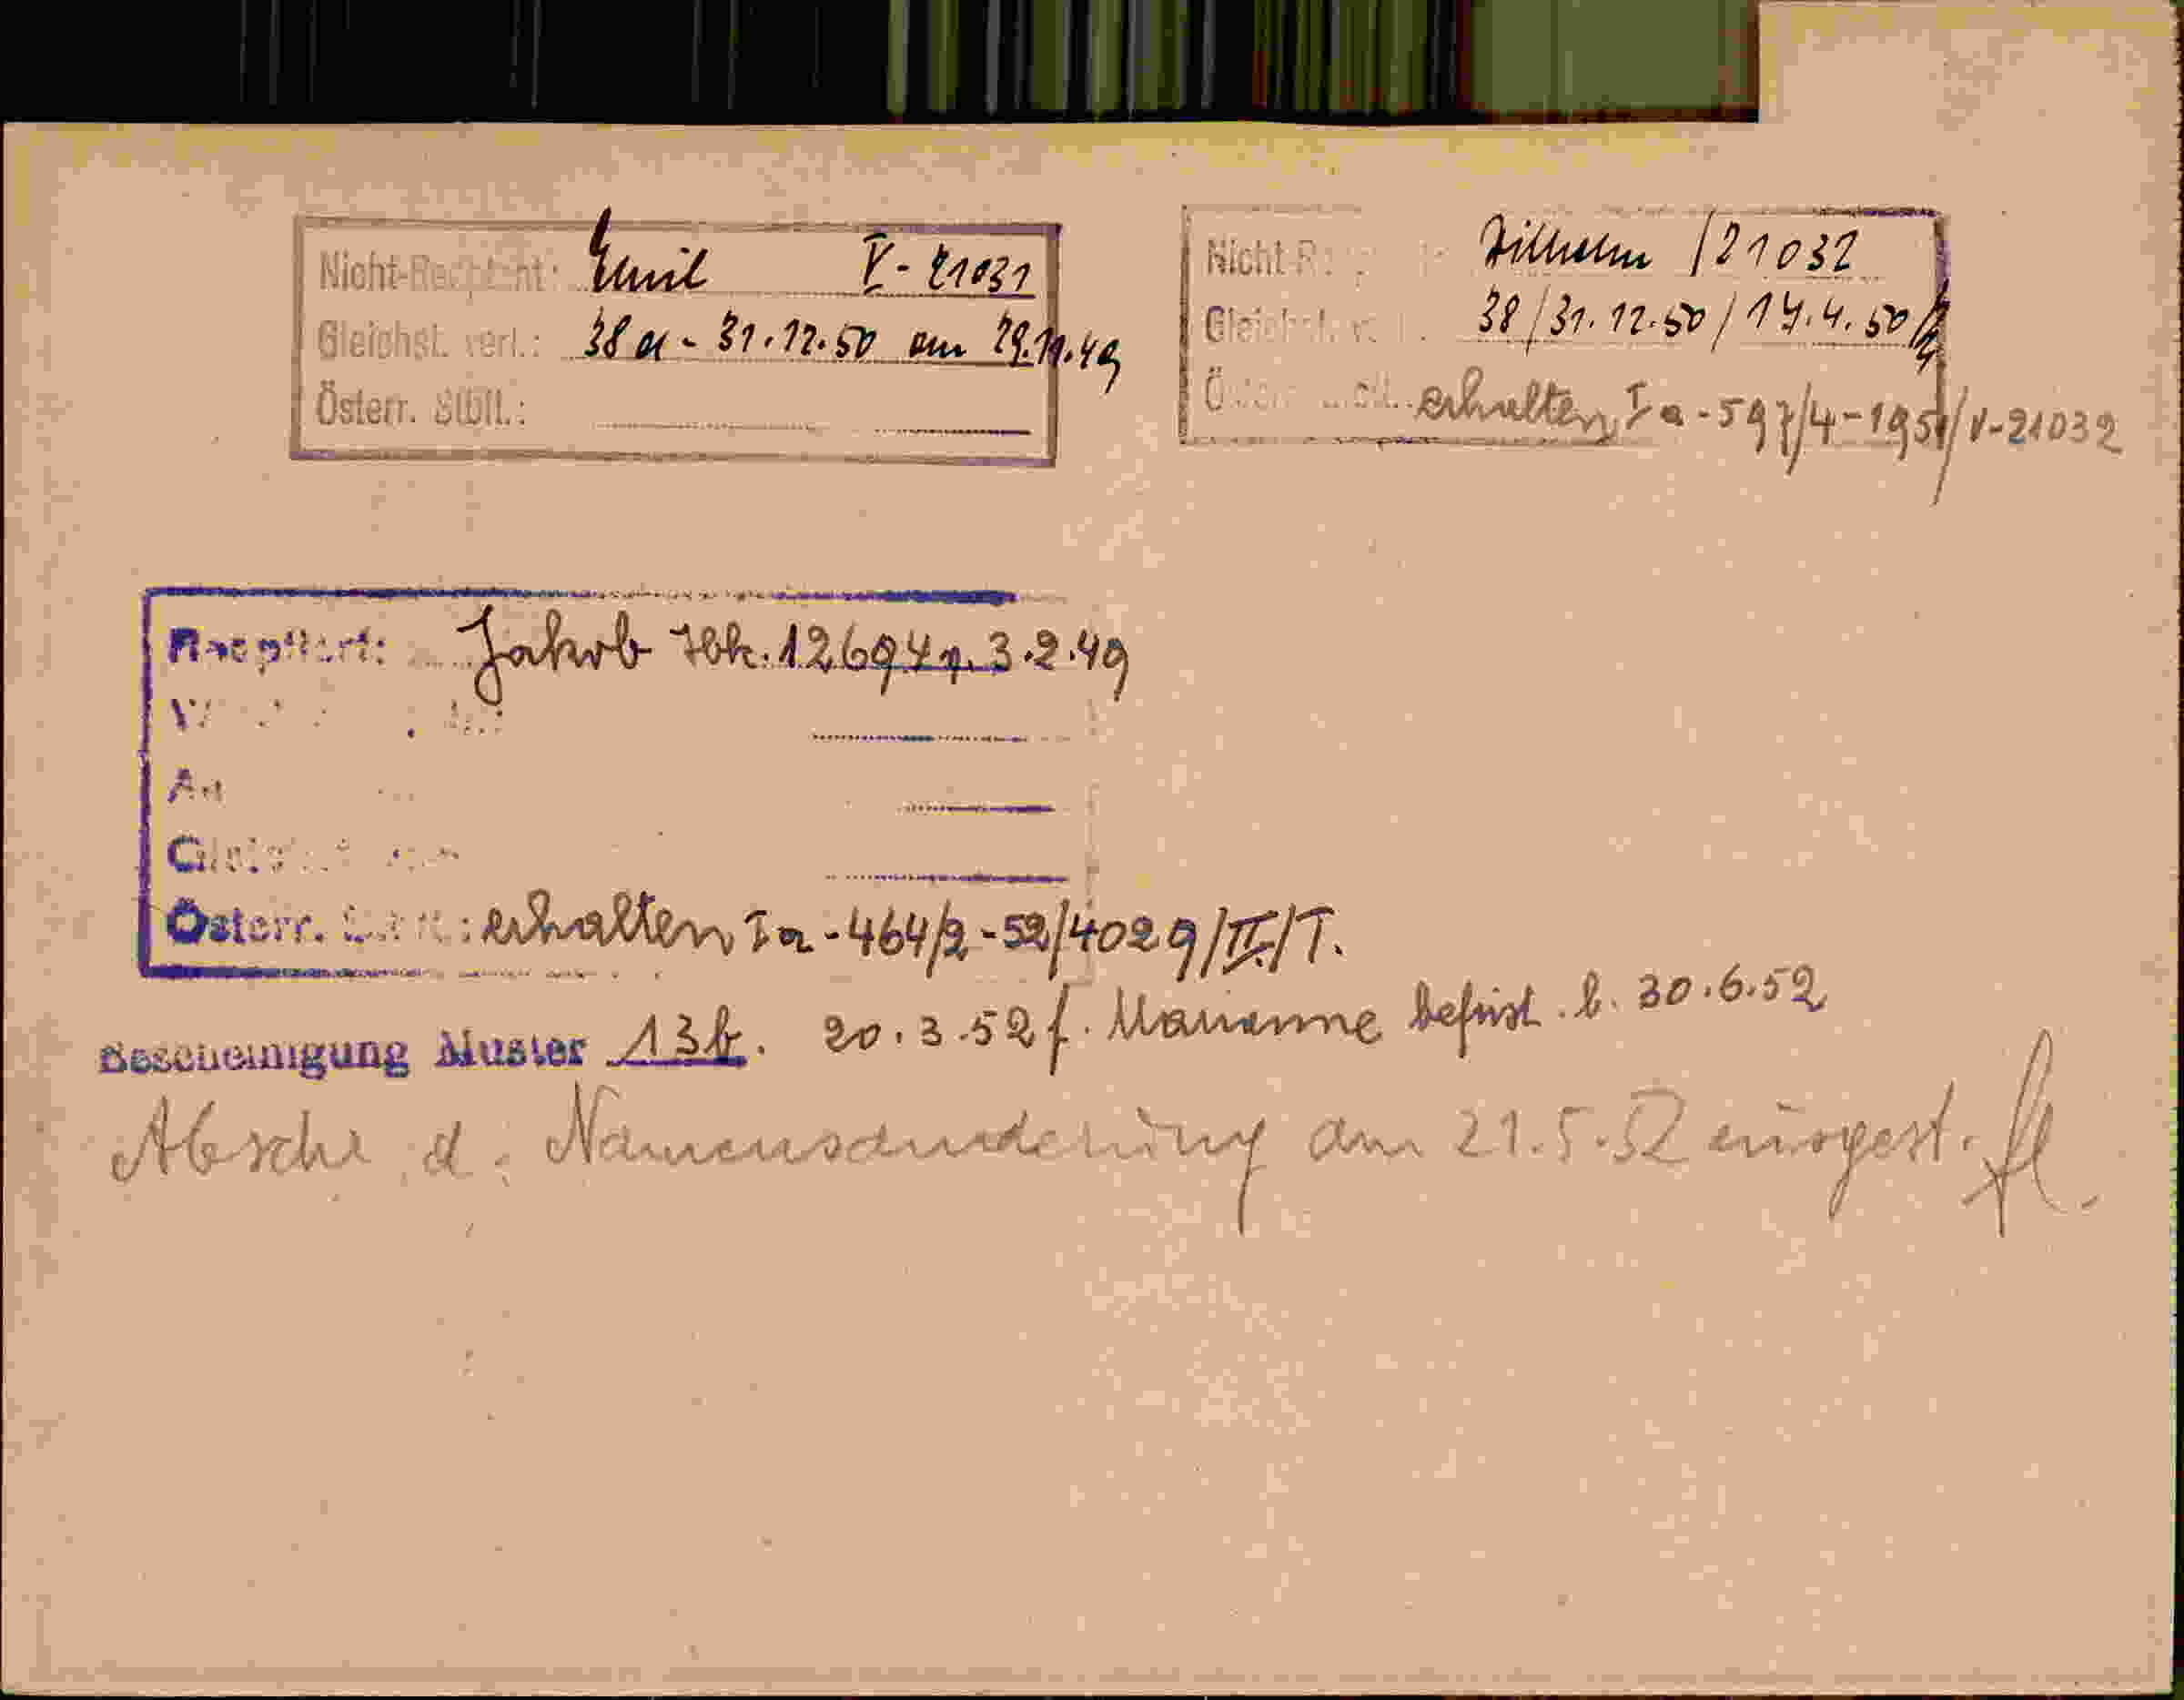 Nicht-Reoptant: Emil V-21031
Gleichst. verl.: 38 a - 31.12.50 am 29.11.49
Österr. Stbft.:
Nicht-R Wilhelm /21032
Gleichst. v 38/31.12.50/14.4.50/
Ö erhalten Ia-597/4-1951/V-21032
Reoptiert: Jakob 12694 3.2.49
Österr. erhalten Ia-464/2-52/4029/II/T.
Bescheinigung Muster 13b. 20.3.52 f. Marianne befrist. b. 30.6.52
Abschr. d. Namensänderung am 21.5.52 eingest. fl.